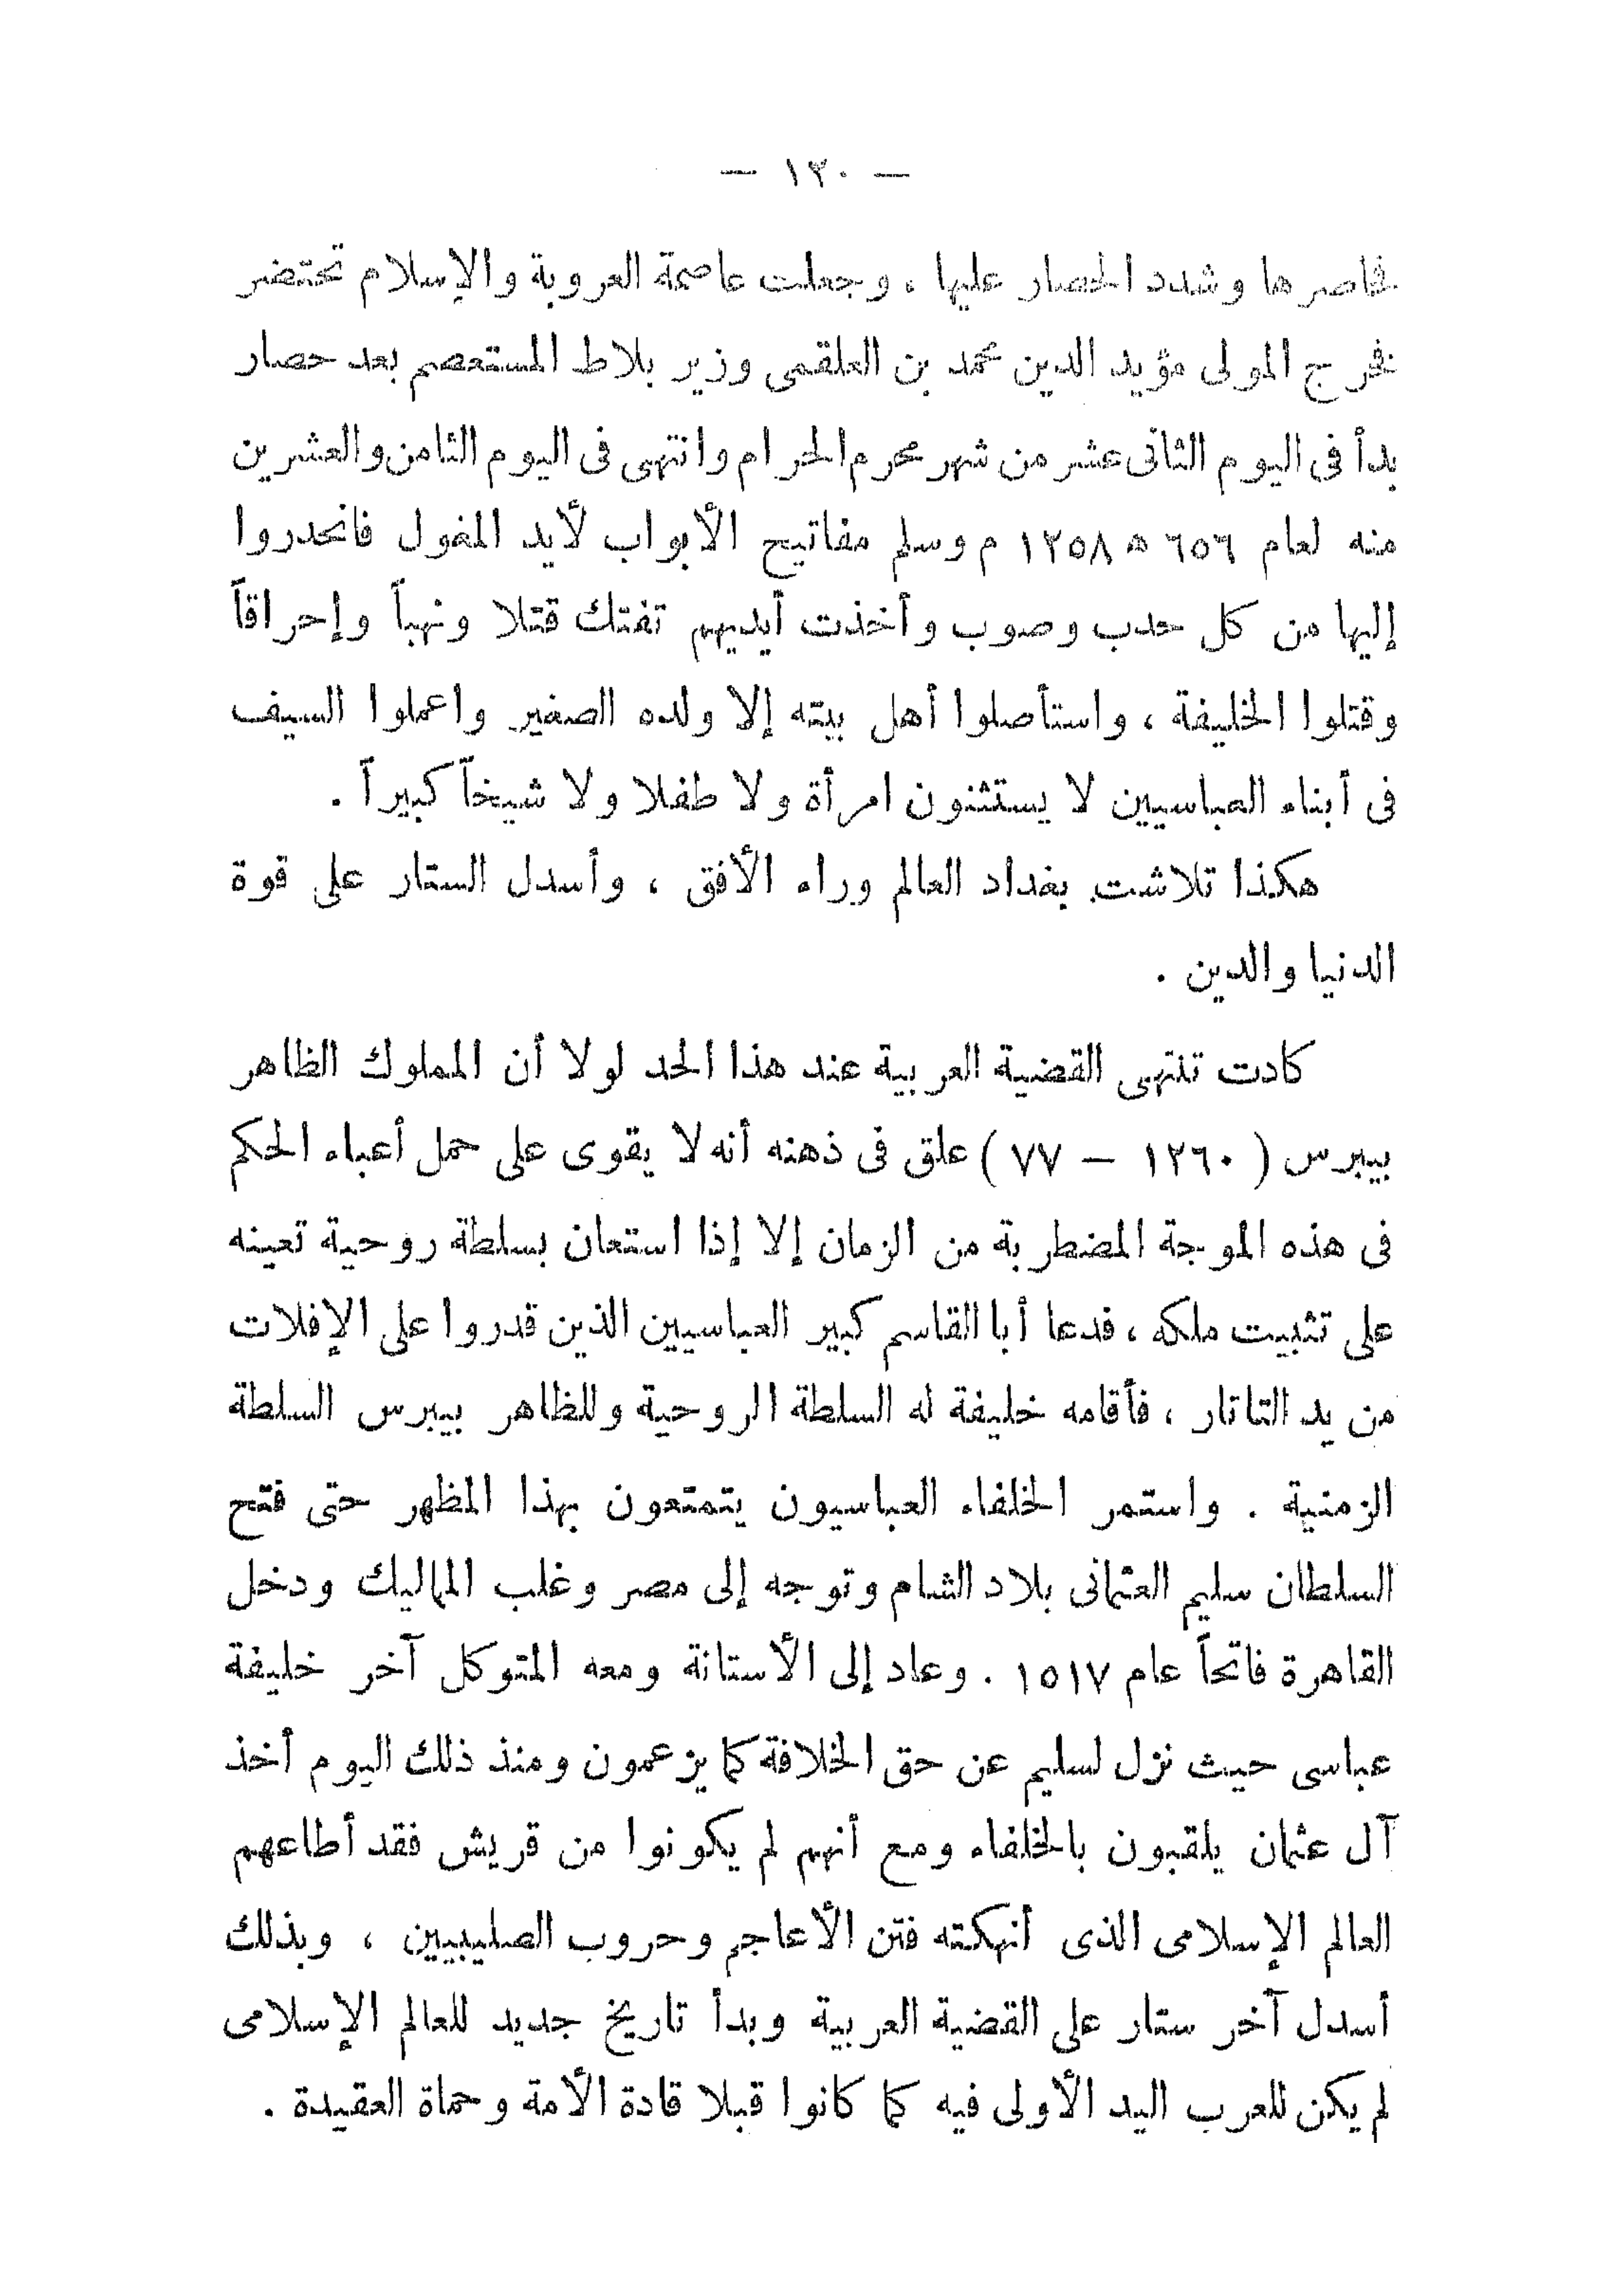 — ١٣٠ —
فحاصرها وشدد الحصار عليها ، وجعلت عاصمة العروبة والإسلام تحتضر
فخرج المولى مؤيد الدين محمد بن العلقمى وزير بلاط المستعصم بعد حصار
بدأ فى اليوم الثانى عشر من شهر محرم الحرام وانتهى فى اليوم الثامن والعشرين
منه لعام ٦٥٦ ه ١٢٥٨ م وسلم مفاتيح الأبواب لأيد المغول فانحدروا
إليها من كل حدب وصوب وأخذت أيديهم تفتك قتلا ونهباً وإحراقاً
وقتلوا الخليفة ، واستأصلوا أهل بيته إلا ولده الصغير واعملوا السيف
فى أبناء العباسيين لا يستثنون امرأة ولا طفلا ولا شيخاً كبيراً .
هكذا تلاشت بغداد العالم وراء الأفق ، وأسدل الستار على قوة
الدنيا والدين .
كادت تنتهى القضية العربية عند هذا الحد لولا أن المملوك الظاهر
بيبرس ( ١٢٦٠ — ٧٧ ) علق فى ذهنه أنه لا يقوى على حمل أعباء الحكم
فى هذه الموجة المضطربة من الزمان إلا إذا استعان بسلطة روحية تعينه
على تثبيت ملكه ، فدعا أبا القاسم كبير العباسيين الذين قدروا على الإفلات
من يد التاتار ، فأقامه خليفة له السلطة الروحية وللظاهر بيبرس السلطة
الزمنية . واستمر الخلفاء العباسيون يتمتعون بهذا المظهر حتى فتح
السلطان سليم العثمانى بلاد الشام وتوجه إلى مصر وغلب المماليك ودخل
القاهرة فاتحاً عام ١٥١٧ . وعاد إلى الأستانة ومعه المتوكل آخر خليفة
عباسى حيث نزل لسليم عن حق الخلافة كما يزعمون ومنذ ذلك اليوم أخذ
آل عثمان يلقبون بالخلفاء ومع أنهم لم يكونوا من قريش فقد أطاعهم
العالم الإسلامى الذى أنهكته فتن الأعاجم وحروب الصليبيين ، وبذلك
أسدل آخر ستار على القضية العربية وبدأ تاريخ جديد للعالم الإسلامى
لم يكن للعرب اليد الأولى فيه كما كانوا قبلا قادة الأمة وحماة العقيدة .